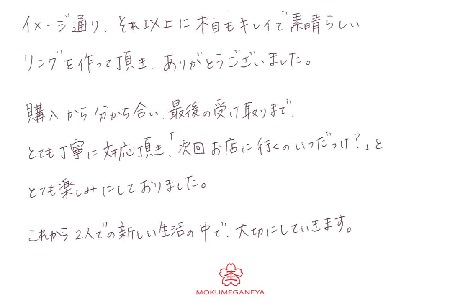 イメージ通り、それ以上に木目もキレイで素晴らしい
リングを作って頂き、ありがとうございました。
購入から分かち合い、最後の受け取りまで、
とても丁寧に対応頂き、「次回お店に行くのいつだっけ?」と
とても楽しみにしておりました。
これから2人での新しい生活の中で、大切にしていきます。
MOKUMEGANEYA